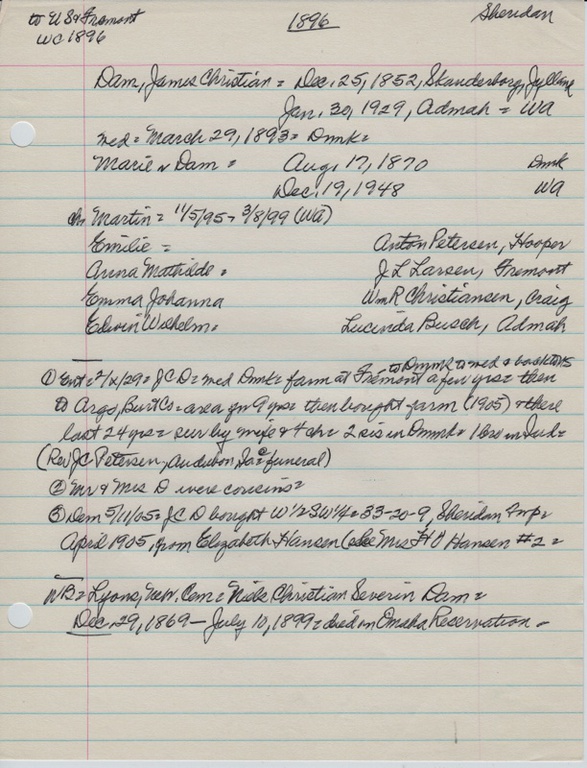 to US & Fremont
WC 1896
1896
Sheridan
Dam, James Christian = Dec. 25, 1852, Skanderborg, Jylland
Jan. 30, 1929, Admah = WA
med = March 29, 1893 = Dmk =
Marie n Dam = Aug. 17, 1870 Dmk
Dec. 19, 1948 WA
ch Martin = 11/5/95 - 3/8/99 (WA)
Emilie = Anton Petersen, Hooper
Anna Mathilde = J L Larsen, Fremont
Emma Johanna Wm R Christiansen, Craig
Edwin Wilhelm = Lucinda Busch, Admah
to Dmk to med & back to US
① Ent = 2/x/29 = J C D = med Dmk = farm at Fremont a few yrs = then
to Argo, Burt Co = area fr 9 yrs = then bought farm (1905) & there
last 24 yrs = sur by wife & 4 ch = 2 sis in Dmk = 1 bro in Ind =
(Rev J C Petersen, Audubon Ia = funeral)
② Mr & Mrs D were cousins =
③ Dem 5/11/05 = J C D bought W 1/2 SW 1/4 = 33-20-9, Sheridan Twp =
April 1905, from Elizabeth Hansen (see Mrs H H Hansen #2 =
NB = Lyons, New. Cem = Niels Christian Severin Dam =
Dec. 29, 1869 - July 10, 1899 = died on Omaha Reservation =